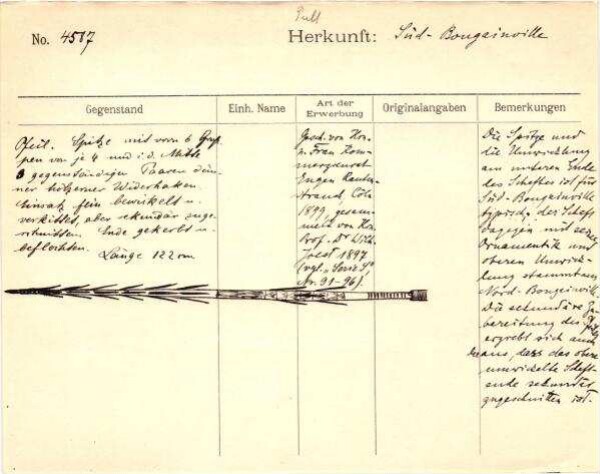 No. 4587
Herkunft: Süd-Bougainville
Gegenstand
Einh. Name
Art der
Erwerbung
Originalangaben
Bemerkungen
Pfeil. Spitze mit vorn 6 Grup-
pen von je 4 und i. d. Mitte
3 gegenständigen Paaren dün-
ner hölzerner Widerhaken.
Einsatz fein bewickelt u.
verkittet, aber sekundär zuge-
schnitten. Ende gekerbt u.
beflochten.
Länge 122 cm
Gesch. von Hrn.
u. Frau Kom-
merzienrat
Eugen Rauten-
strauch, Cöln
1899, gesam-
melt von Hrn.
Prof. Dr. Wilh.
Joest 1897
(vgl.
Nr. 91-96).
Die Spitze und
die Umwicklung
am unteren Ende
des Schaftes ist für
Süd-Bougainville
typisch, der Schaft
dagegen mit seiner
Ornamentik und
oberen Umwick-
lung stammt aus
Nord-Bougainville.
Die sekundäre
bereitung des
ergibt sich auch
daraus, dass das obere
umwickelte Schaft-
ende sekundär
zugeschnitten ist.